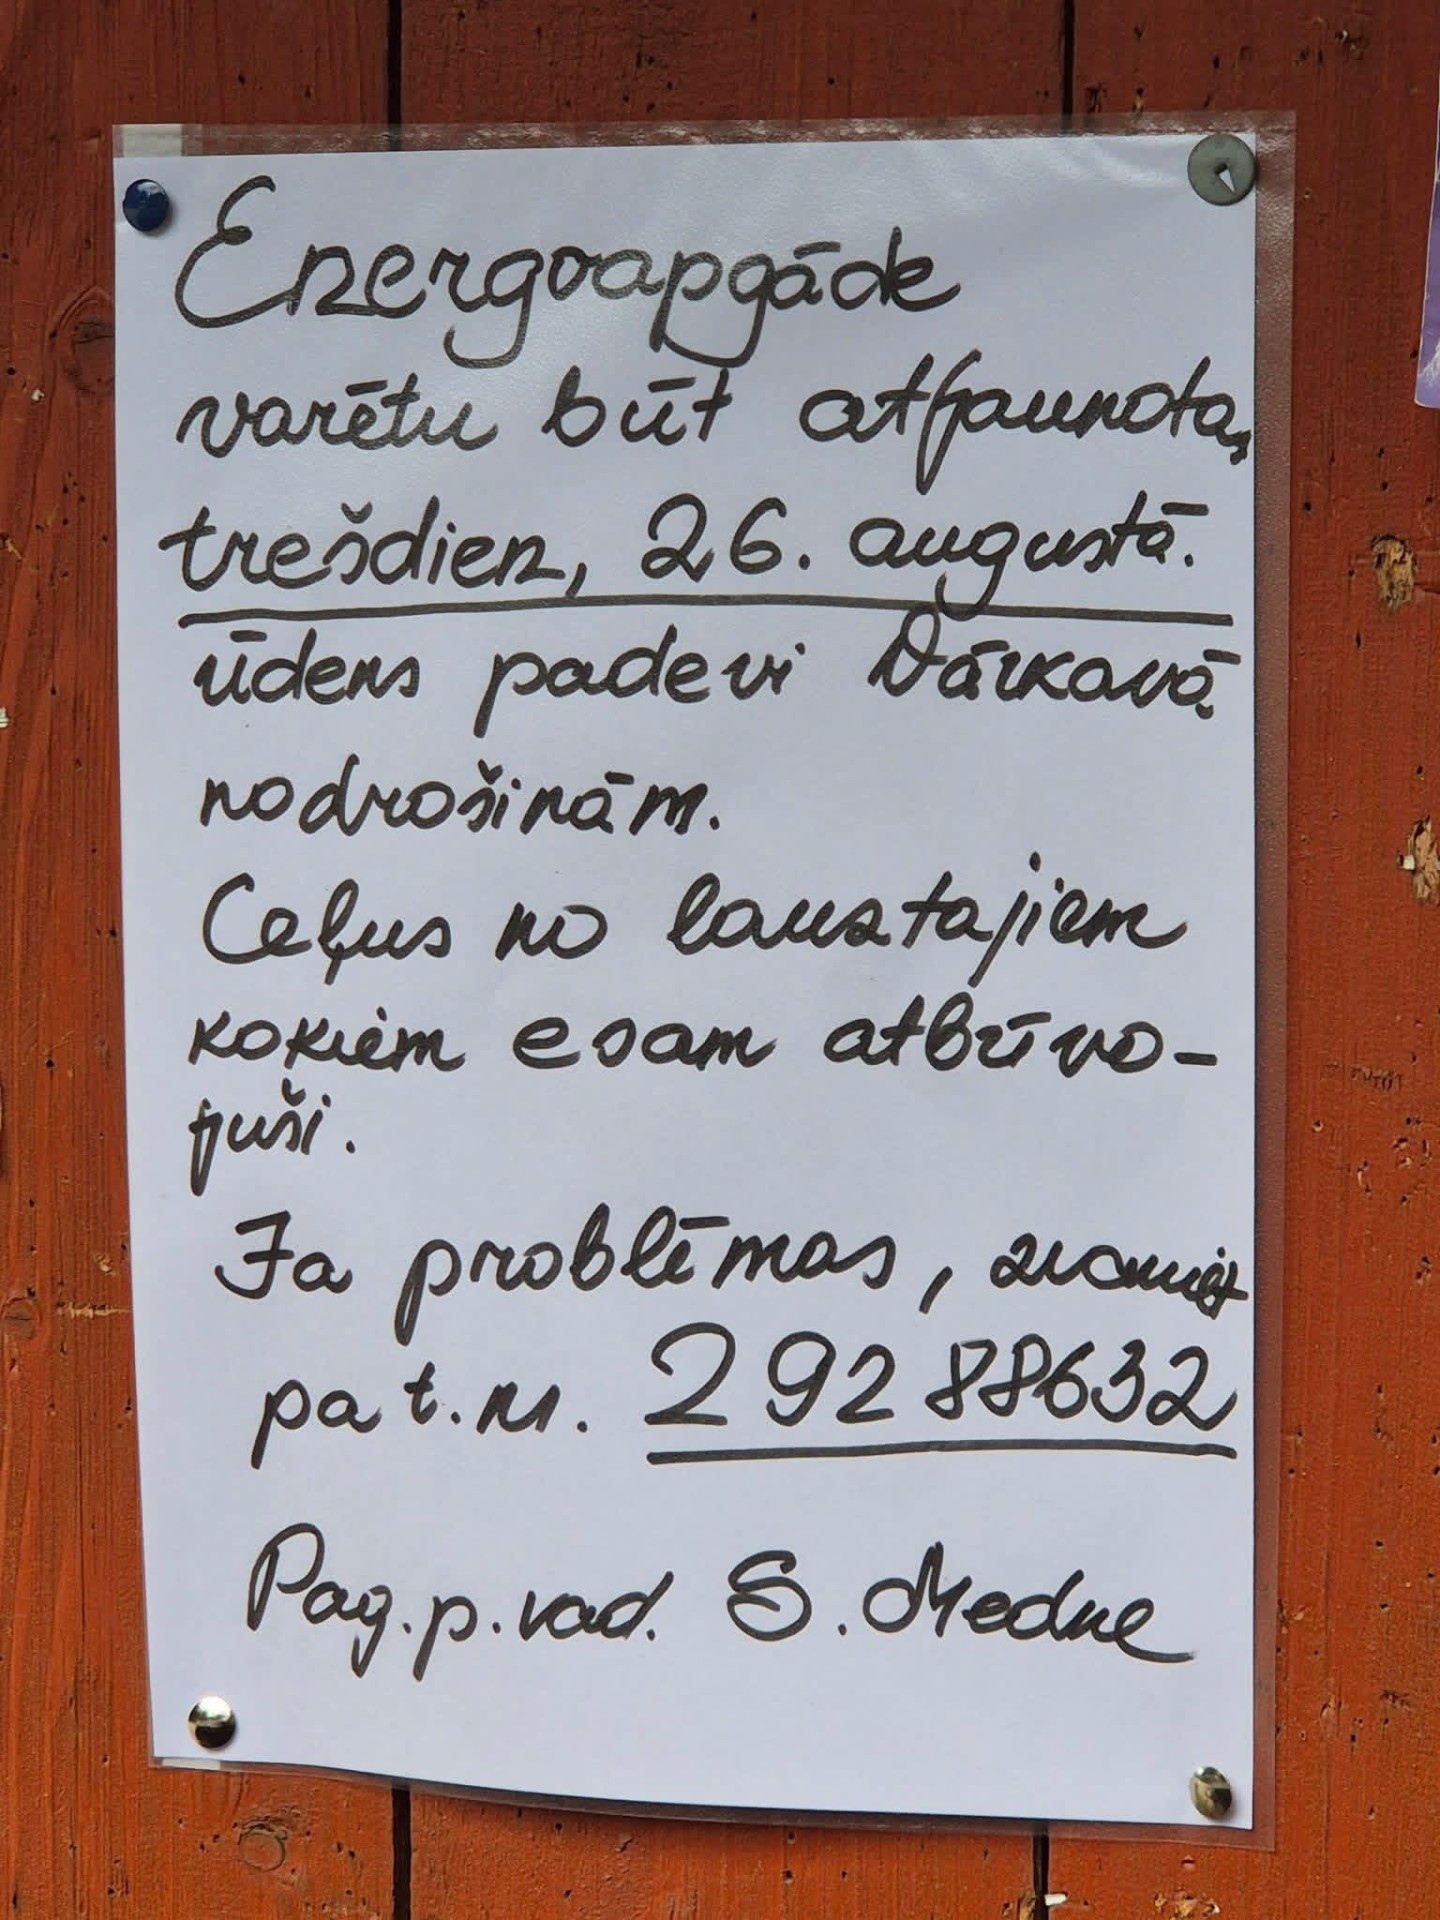 Energoapgāde
varētu būt atjaunota,
trešdien, 26. augustā.
ūdens padevi Vārkavā
nodrošinām.
Ceļus no lauztajiem
kokiem esam atbrīvo-
juši.
Ja problēmas, zvaniet
pa t. nr. 29288632
Pag. p. vad. S. Medne